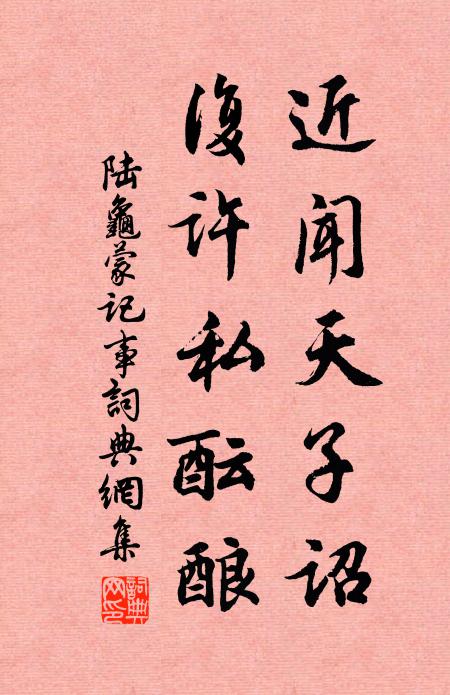 近闻天子诏
復许私酝酿
陆龜蒙记事詞典網集
詞典网印